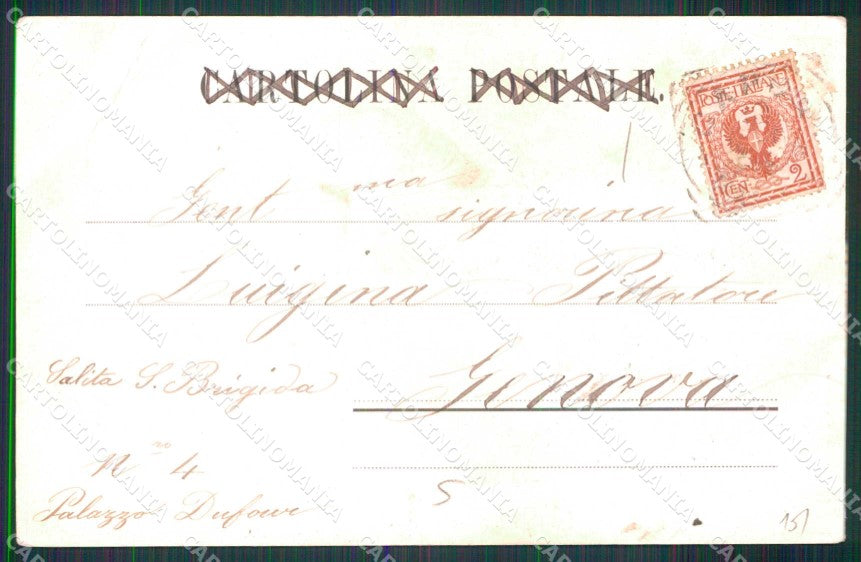 CARTOLINA POSTALE.
POSTE ITALIANE
CEN 2
Gent ma signorina
Luigina Pittatore
Salita S. Brigida
Genova
N ro 4
Palazzo Dufour
5
15/
CARTOLINOMANIA